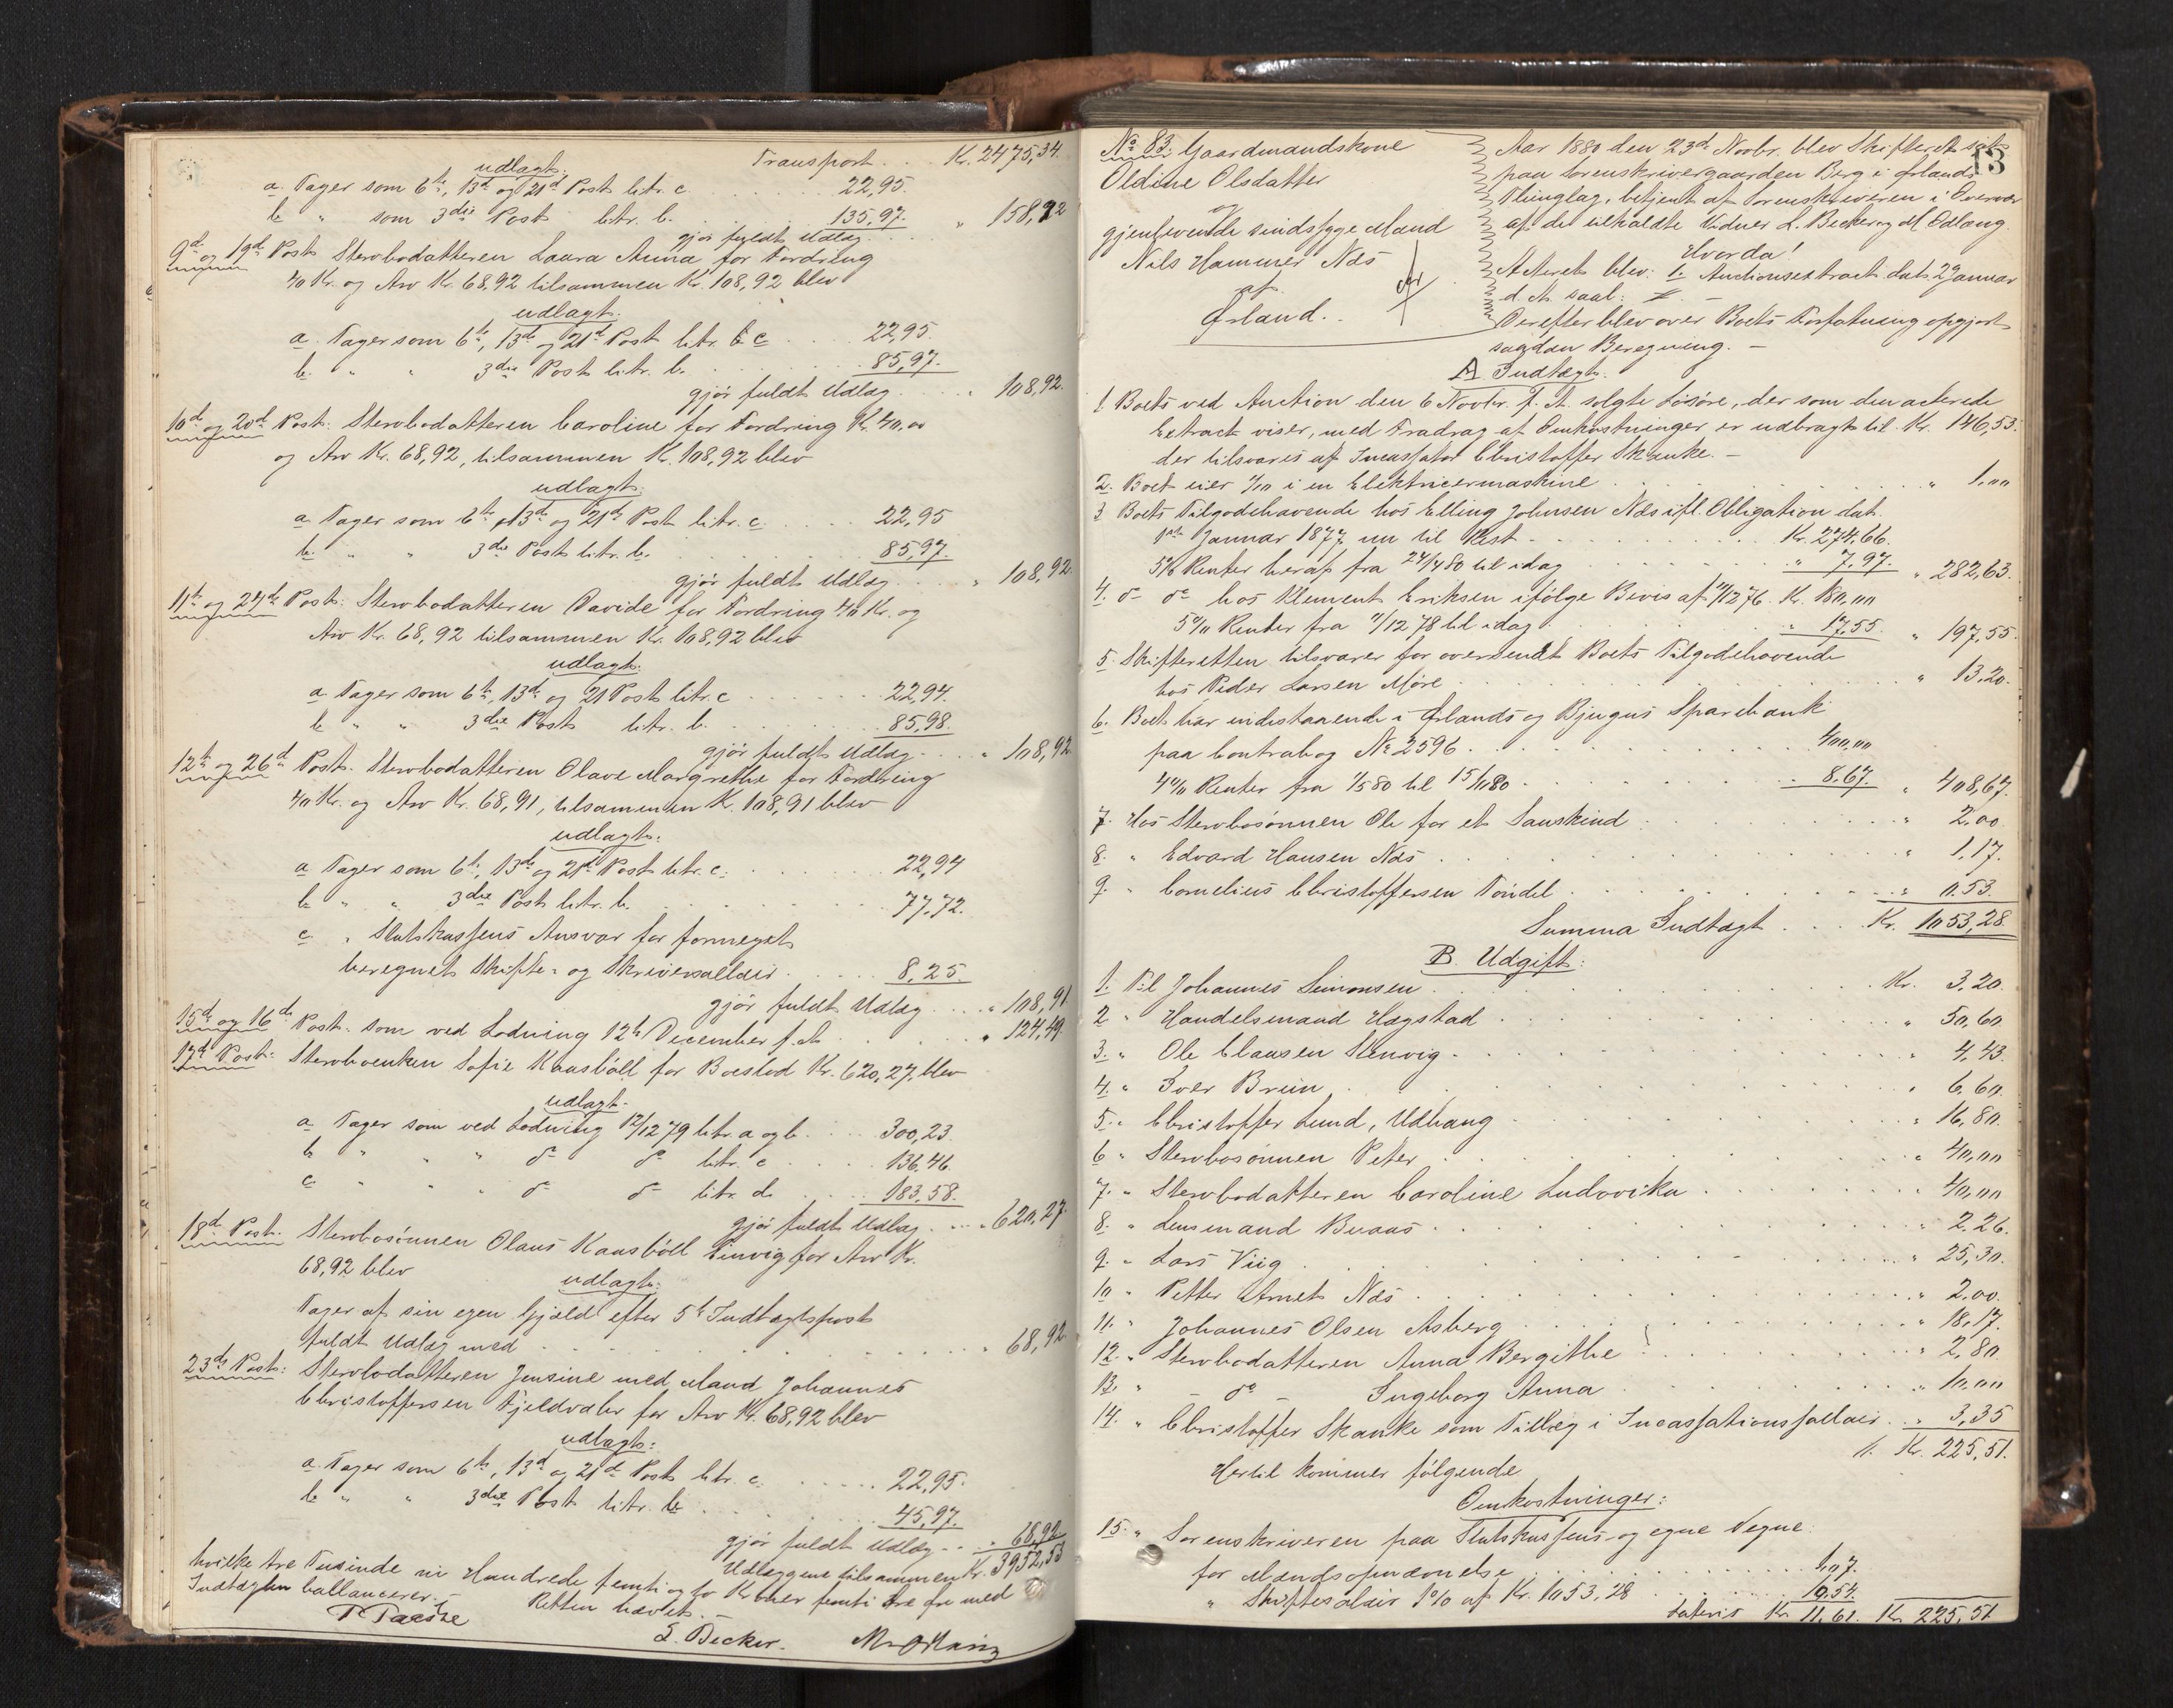 Transport . . . Kr. 2475,34.
udlagt:
a. Tager som 6te, 13de og 21de Post litr. c . . . 22,95.
b. " som 3die Post litr. b. . . . 135,97.
gjør fuldt Udlæg . . . " 158,92
9de og 19de Post Sterbodatteren Laura Anna for Fordring
40 Kr. og Arv Kr. 68,92 tilsammen Kr. 108,92 blev
udlagt:
a. Tager som 6te, 13de og 21de Post litr. c . . . 22,95.
b. " " 3die Post litr. b. . . . 85,97.
gjør fuldt Udlæg . . . " 108,92.
10de og 20de Post: Sterbodatteren Caroline for Fordring Kr. 40,00
og Arv Kr. 68,92, tilsammen Kr. 108,92 blev
udlagt:
a. Tager som 6te, 13de og 21de Post litr. c. . . . 22,95
b. " " 3die Post litr. b. . . . 85,97.
gjør fuldt Udlæg . . . " 108,92.
11te og 24de Post: Sterbodatteren Davide for Fordring 40 Kr. og
Arv Kr. 68,92 tilsammen Kr. 108,92 blev
udlagt:
a. Tager som 6te, 13de og 21 Post litr. c . . . 22,94.
b. " " 3die Post litr. b. . . . 85,98.
gjør fuldt Udlæg . . . " 108,92
12te og 26de Post. Sterbodatteren Olave Margrethe for Fordring
40 Kr. og Arv Kr. 68,91, tilsammen Kr. 108,91 blev
udlagt:
a. Tager som 6te, 13de og 21de Post litr. c. . . . 22,94
b. " " 3die Post litr. b. . . . 77,72.
c. " Statskassens Ansvar for formeget
beregnet Skifte- og Skriversallair . . . 8,25.
gjør fuldt Udlæg . . . " 108,91.
15de og 16de Post. som ved Lodning 12te December f. A. . . . " 124,49.
17de Post: Sterboenken Sofie Kaasböll for Boeslod Kr. 620,27 blev
udlagt.
a. Tager som ved Lodning 12/12 79 litr. a og b. . . . 300,23.
b. " " " do do litr. c . . . 136,46.
c. " " " do do litr. d. . . . 183,58.
gjør fuldt Udlæg . . . " 620,27.
18de Post. Sterbosönnen Olaus Kaasböll for Arv Kr.
68,92 blev
udlagt:
Tager af sin egen Gjæld efter 5te Indtægtspost
fuldt Udlæg med . . . " 68,92
23de Post: Sterbodatteren Jensine med Mand Johannes
Christoffersen Fjeldvær for Arv Kr. 68,92 blev
udlagt:
a. Tager som 6te, 13de og 21de Post litr. c. . . . 22,95.
b. " " 3die Post litr. b. . . . 45,97.
gjør fuldt Udlæg . . . " 68,92
Udlæggene tilsammen Kr. 3952,53
hvilke tre Tusinde ni Hundrede femti og to Kroner femti tre Øre med
Indtægten ballancerer.
Retten hævet.
L. Becker.
No 83. Gaardmandskone
Oldine Olsdatter
og
gjenlevende sindssyge Mand
Nils Hammer Næs
af
Ørland.
13
Aar 1880 den 23de Novbr. blev Skifteret sat
paa Sorenskrivergaarden Berg i Ørlands
Thinglag, betjent af Sorenskriveren i Overvær
af de tilkaldte Vidner L. Becker og M Ödlæng.
Hvorda!
Acteret blev: 1. Auctionsextract dat. 2 Januar
d. A. saal:
Derefter blev over Boets Forfatning opgjort
saadan Beregning. –
A. Indtægt.
1. Boets ved Auction den 6 Novbr. f. A. solgte Løsöre, der som den acterede
Extract viser, med Fradrag af Omkostninger er udbragt til Kr. 146,53.
der tilsvares af Incassator Christoffer Skanke. –
2. Boet eier 1/10 i en Elektricermaskine . . . " 1,00
3. Boets Tilgodehavende hos Elling Johnsen Næs ifl. Obligation dat.
1ste Januar 1877 nu til Rest . . . Kr. 274,66.
5% Renter heraf fra 24/4 80 til idag . . . " 7,97. " 282,63.
4. do do hos Klement Eriksen ifölge Bevis af 12/12 76. Kr. 180,00
5% Renter fra 1/12 78 til idag . . . " 17,55. " 197,55.
5. Skifteretten tilsvarer for oversendt Boets Tilgodehavende
hos Peder Larsen Möre . . . " 13,20.
6. Boet har indestaaende i Ørlands og Bjugns Sparebank
paa Contrabog No 2596 . . . 400,00
4% Renter fra 1/5 80 til 15/11 80 . . . 8,67. " 408,67.
7. Hos Sterbosönnen Ole for et Saueskind . . . " 2,00
8. " Edvard Hansen Næs . . . " 1,17.
9. " Cornelius Christoffersen Töndel . . . " 0,53.
Summa Indtægt . . . Kr. 1053,28
B. Udgift:
1. Til Johannes Simonsen . . . Kr. 3,20.
2 " Handelsmand Hægstad . . . " 50,60
3. " Ole Clausen Stenvig . . . " 4,43.
4. " Iver Brein . . . " 6,60.
5. " Christoffer Lund, Udhaug . . . " 16,80.
6 " Sterbosönnen Peter . . . " 40,00
7. " Sterbodatteren Caroline Ludovika . . . " 40,00
8. " Lensmand Buaas . . . " 2,26.
9. " Lars Viig . . . " 25,30.
10 " Petter Arnet Næs . . . " 2,00.
11. " Johannes Olsen Asberg . . . " 18,17.
12. " Sterbodatteren Anna Bergithe . . . " 2,80
13. " – do – Ingeborg Anna . . . " 10,00
14. " Christoffer Skanke som Tillæg i Incassationssallair . . . " 3,35
Kr. 225,51.
Hertil kommer følgende
Omkostninger:
15. " Sorenskriveren paa Statskassens og egne Vegne:
for Mandsopnævnelse . . . 1,07.
" Skiftesalair 1% af Kr. 1053,28 . . . 10,54.
Lateris Kr. 11,61. Kr. 225,51.